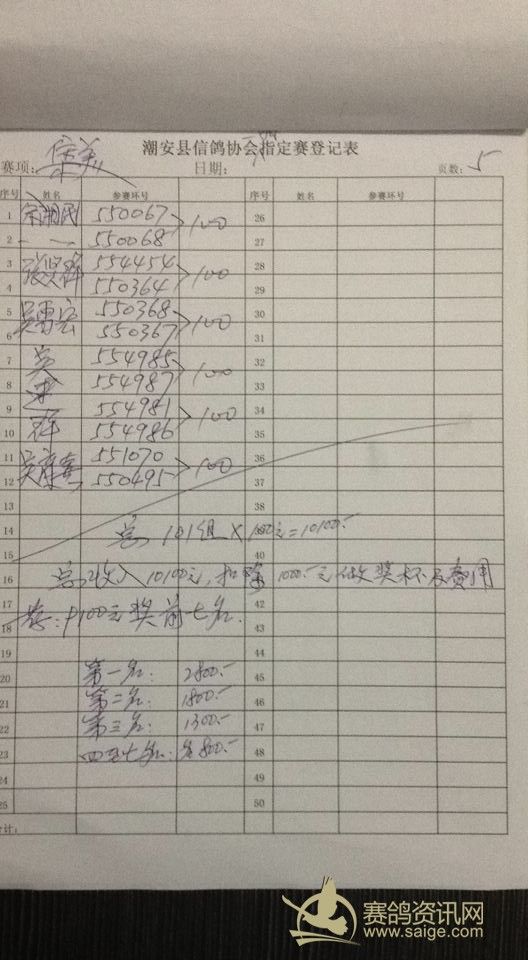 潮安县信鸽协会指定赛登记表
赛项: 日期: 页数: 5
序号 姓名 参赛环号 序号 姓名 参赛环号
1 550067 >100 26
2 550068 27
3 张贤群 554454 >100 28
4 550364 29
5 吴雷宏 550368 >100 30
6 550367 31
7 吴 554985 >100 32
8 554987 33
9 554981 >100 34
10 群 554986 35
11 551070 >100 36
12 550495 37
13 38
14 总 101组×100元=10100.-
15 40
16 总收入10100元, 扣除1000.-元做奖杯及费用
17 42
18 9100元奖前七名. 43
19 44
20 第一名: 2800.- 45
21 第二名: 1800.- 46
22 第三名: 1300.- 47
23 四至七名: 各800.- 48
24 49
25 50
合计:
赛鸽资讯网
www.saige.com